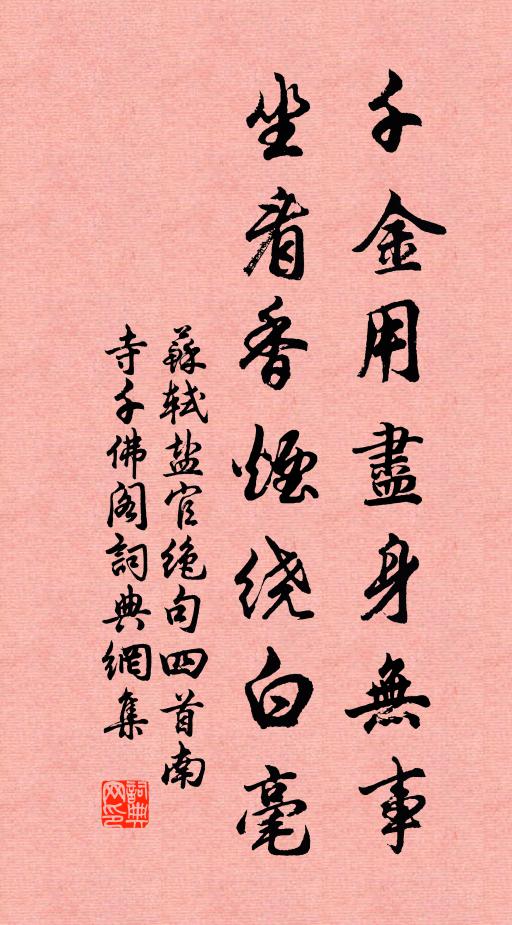 千金用盡身無事
坐看香煙绕白毫
蘇轼盐官绝句四首南
寺千佛阁詞典網集
詞典
网印